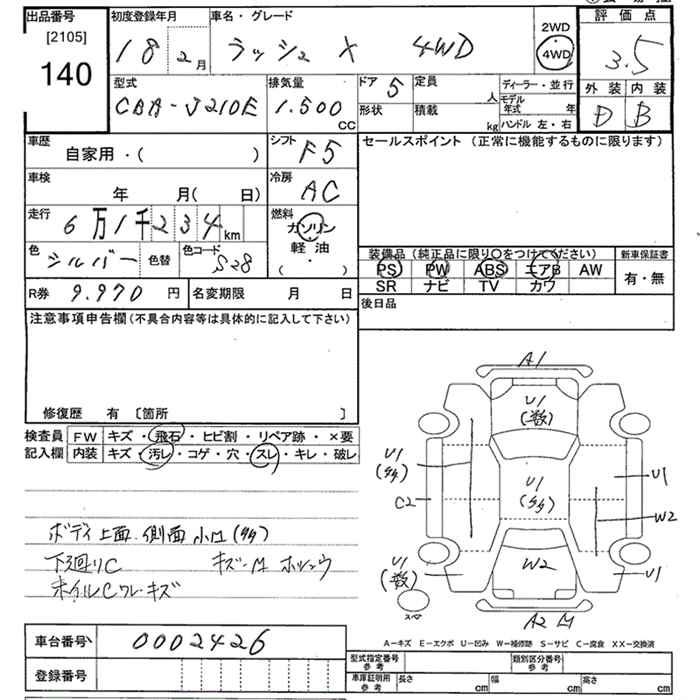 出品番号 [2105] 140
初度登録年月 18 2月
車名・グレード ラッシュ X 4WD
2WD 4WD
評価点 3.5
外装 D 内装 B
型式 CBA-J210E
排気量 1.500 CC
ドア 5 定員 人
形状 積載 kg
ディーラー・並行
モデル年式 年
ハンドル 左・右
車歴 自家用・( )
シフト F5
セールスポイント (正常に機能するものに限ります)
車検 年 月( 日)
冷房 AC
走行 6万1千234km
燃料 ガソリン 軽油 ( ・ )
色 シルバー 色替 色コード S28
装備品 (純正品に限り○をつけてください) 新車保証書
PS PW ABS エアB AW 有・無
SR ナビ TV カワ
R券 9.970 円 名変期限 月 日
後日品
注意事項申告欄(不具合内容等は具体的に記入して下さい)
修復歴 有 〔箇所 〕
検査員記入欄 FW キズ・飛石・ヒビ割・リペア跡・×要
内装 キズ・汚レ・コゲ・穴・スレ・キレ・破レ
ボディ上面.側面 小凹(多々)
下廻りC
ホイルCワレ・キズ
A1
U1 (数)
U1 (多々)
U1 (多々)
U1
C2
W2
U1 (数)
W2
U1
スペア
A2 凹
A-キズ E-エクボ U-凹み W-補修跡 S-サビ C-腐食 XX-交換済
車台番号 0002426
登録番号
型式指定番号 参考 類別区分番号 参考
車庫証明用 参考 長さ cm 幅 cm 高さ cm